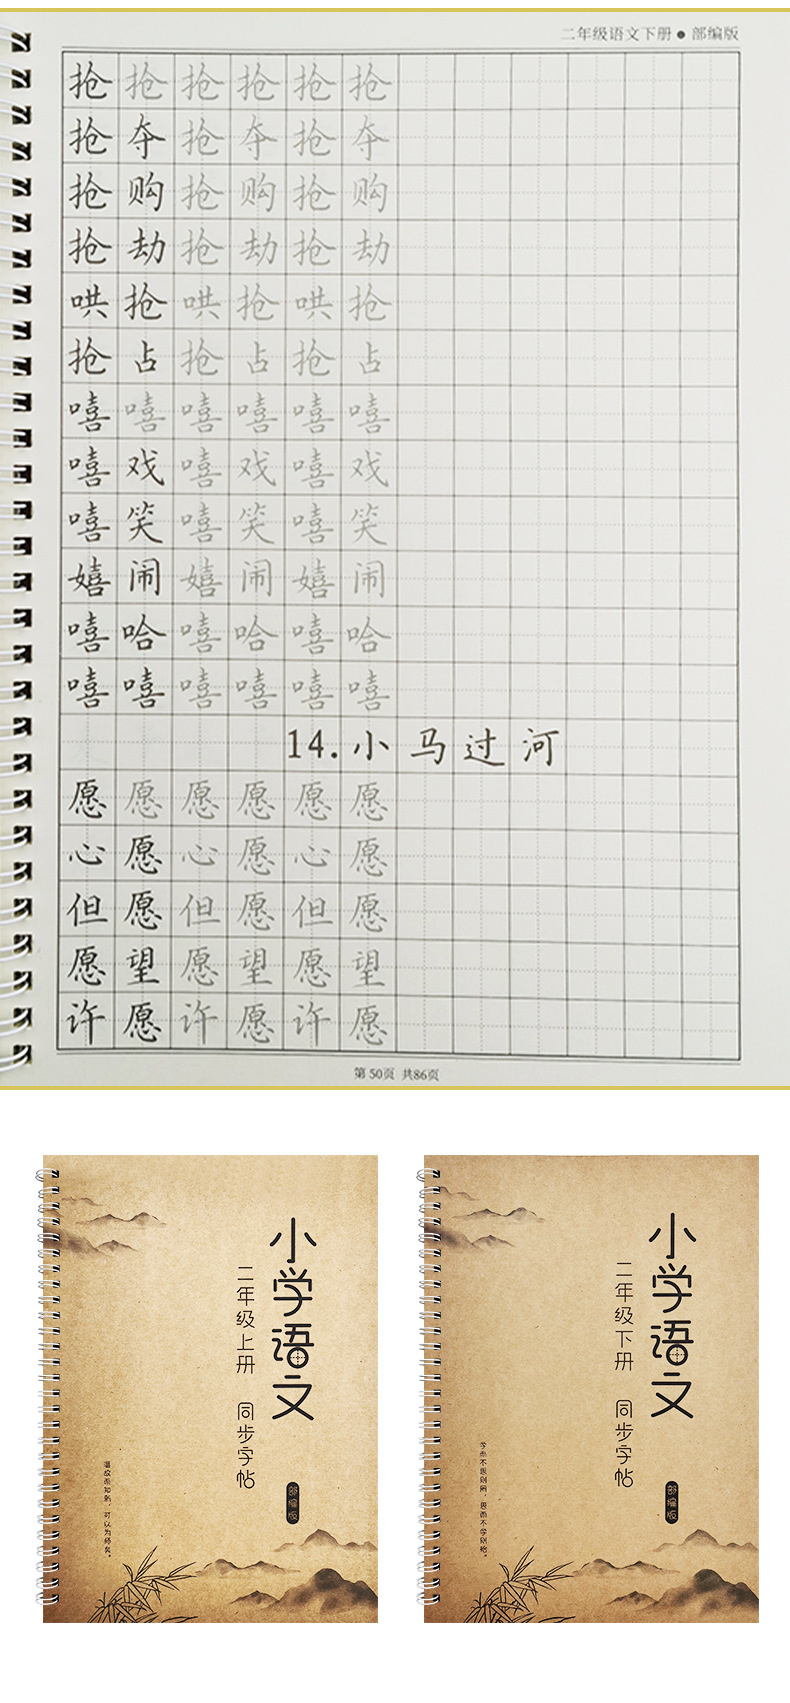 二年级语文下册 ● 部编版
抢抢抢抢抢抢
抢夺抢夺抢夺
抢购抢购抢购
抢劫抢劫抢劫
哄抢哄抢哄抢
抢占抢占抢占
嘻嘻嘻嘻嘻嘻
嘻戏嘻戏嘻戏
嘻笑嘻笑嘻笑
嬉闹嬉闹嬉闹
嘻哈嘻哈嘻哈
嘻嘻嘻嘻嘻嘻
14.小马过河
愿愿愿愿愿愿
心愿心愿心愿
但愿但愿但愿
愿望愿望愿望
许愿许愿许愿
第 50页 共86页
小学语文
二年级上册 同步字帖
部编版
温故而知新,可以为师矣。
小学语文
二年级下册 同步字帖
部编版
学而不思则罔,思而不学则殆。